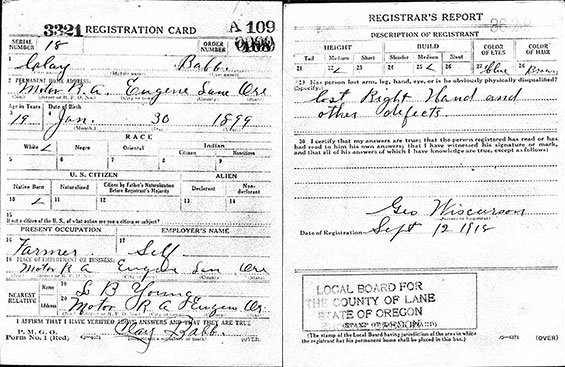 3321 REGISTRATION CARD A 109
SERIAL NUMBER 18 ORDER NUMBER
1 Clay Babb
2 PERMANENT HOME ADDRESS:
Motor R.A. Eugene Lane Ore
Age in Years Date of Birth
19 Jan. 30 1899
RACE
White Negro Oriental Indian
Citizen Noncitizen
U. S. CITIZEN ALIEN
Native Born Naturalized Citizen by Father's Naturalization Before Registrant's Majority Declarant Non-declarant
10 11 12 13 14
15
If not a citizen of the U. S., of what nation are you a citizen or subject?
PRESENT OCCUPATION EMPLOYER'S NAME
16 Farmer 17 Self
18 PLACE OF EMPLOYMENT OR BUSINESS:
Motor R A Eugene Lan Ore
NEAREST RELATIVE Name 19 L B Young
Address 20 Motor R A Eugene Or.
I AFFIRM THAT I HAVE VERIFIED ABOVE ANSWERS AND THAT THEY ARE TRUE
P. M. G. O.
Form No. 1 (Red) Clay Babb (OVER)
REGISTRAR'S REPORT
DESCRIPTION OF REGISTRANT
HEIGHT BUILD COLOR OF EYES COLOR OF HAIR
Tall Medium Short Slender Medium Stout
21 22 23 24 25 26 27 Blue 28 Brown
29 Has person lost arm, leg, hand, eye, or is he obviously physically disqualified?
(Specify.)
lost Right Hand and
other defects
30 I certify that my answers are true; that the person registered has read or has
had read to him his own answers; that I have witnessed his signature or mark,
and that all of his answers of which I have knowledge are true, except as follows:
Geo Wiscarson
Date of Registration Sept 12 1918
LOCAL BOARD FOR
THE COUNTY OF LANE
STATE OF OREGON
(STAMP OF LOCAL BOARD)
(The stamp of the Local Board having jurisdiction of the area in which
the registrant has his permanent home shall be placed in this box.)
(OVER)